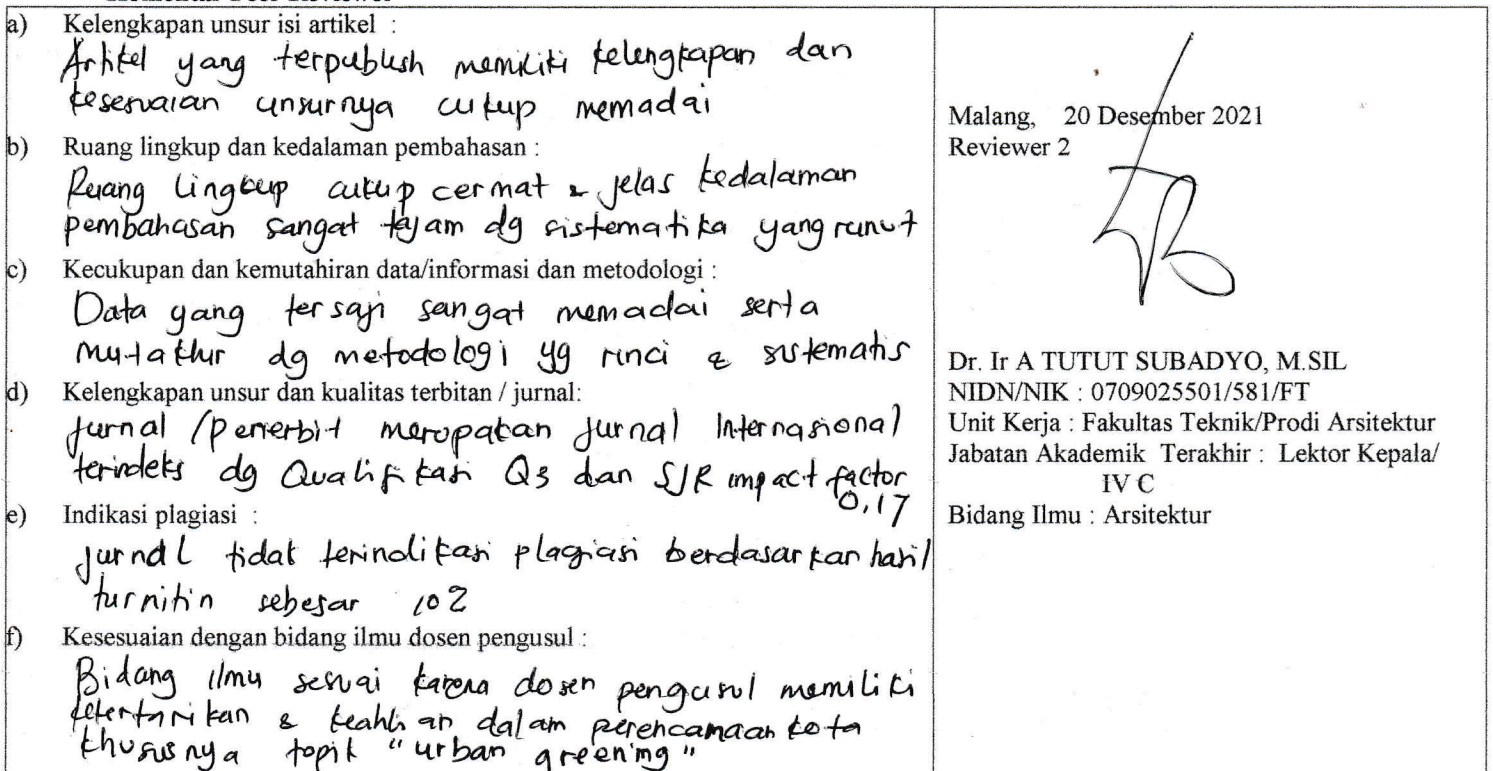 a) Kelengkapan unsur isi artikel :
Artikel yang terpublish memiliki kelengkapan dan
kesesuaian unsurnya cukup memadai
b) Ruang lingkup dan kedalaman pembahasan :
Ruang lingkup cukup cermat & jelas kedalaman
pembahasan sangat tajam dg sistematika yang runut
c) Kecukupan dan kemutahiran data/informasi dan metodologi :
Data yang tersaji sangat memadai serta
mutakhir dg metodologi yg rinci & sistematis
d) Kelengkapan unsur dan kualitas terbitan / jurnal:
Jurnal /penerbit merupakan Jurnal Internasional
terindeks dg Qualifikasi Q3 dan SJR impact factor
0,17
e) Indikasi plagiasi :
Jurnal tidak terindikasi plagiasi berdasarkan hasil
turnitin sebesar
f) Kesesuaian dengan bidang ilmu dosen pengusul :
Bidang ilmu sesuai karena dosen pengusul memiliki
ketertarikan & keahlian dalam perencanaan kota
khususnya topik "urban greening"
Malang, 20 Desember 2021
Reviewer 2
Dr. Ir A TUTUT SUBADYO, M.SIL
NIDN/NIK : 0709025501/581/FT
Unit Kerja : Fakultas Teknik/Prodi Arsitektur
Jabatan Akademik Terakhir : Lektor Kepala/
IV C
Bidang Ilmu : Arsitektur